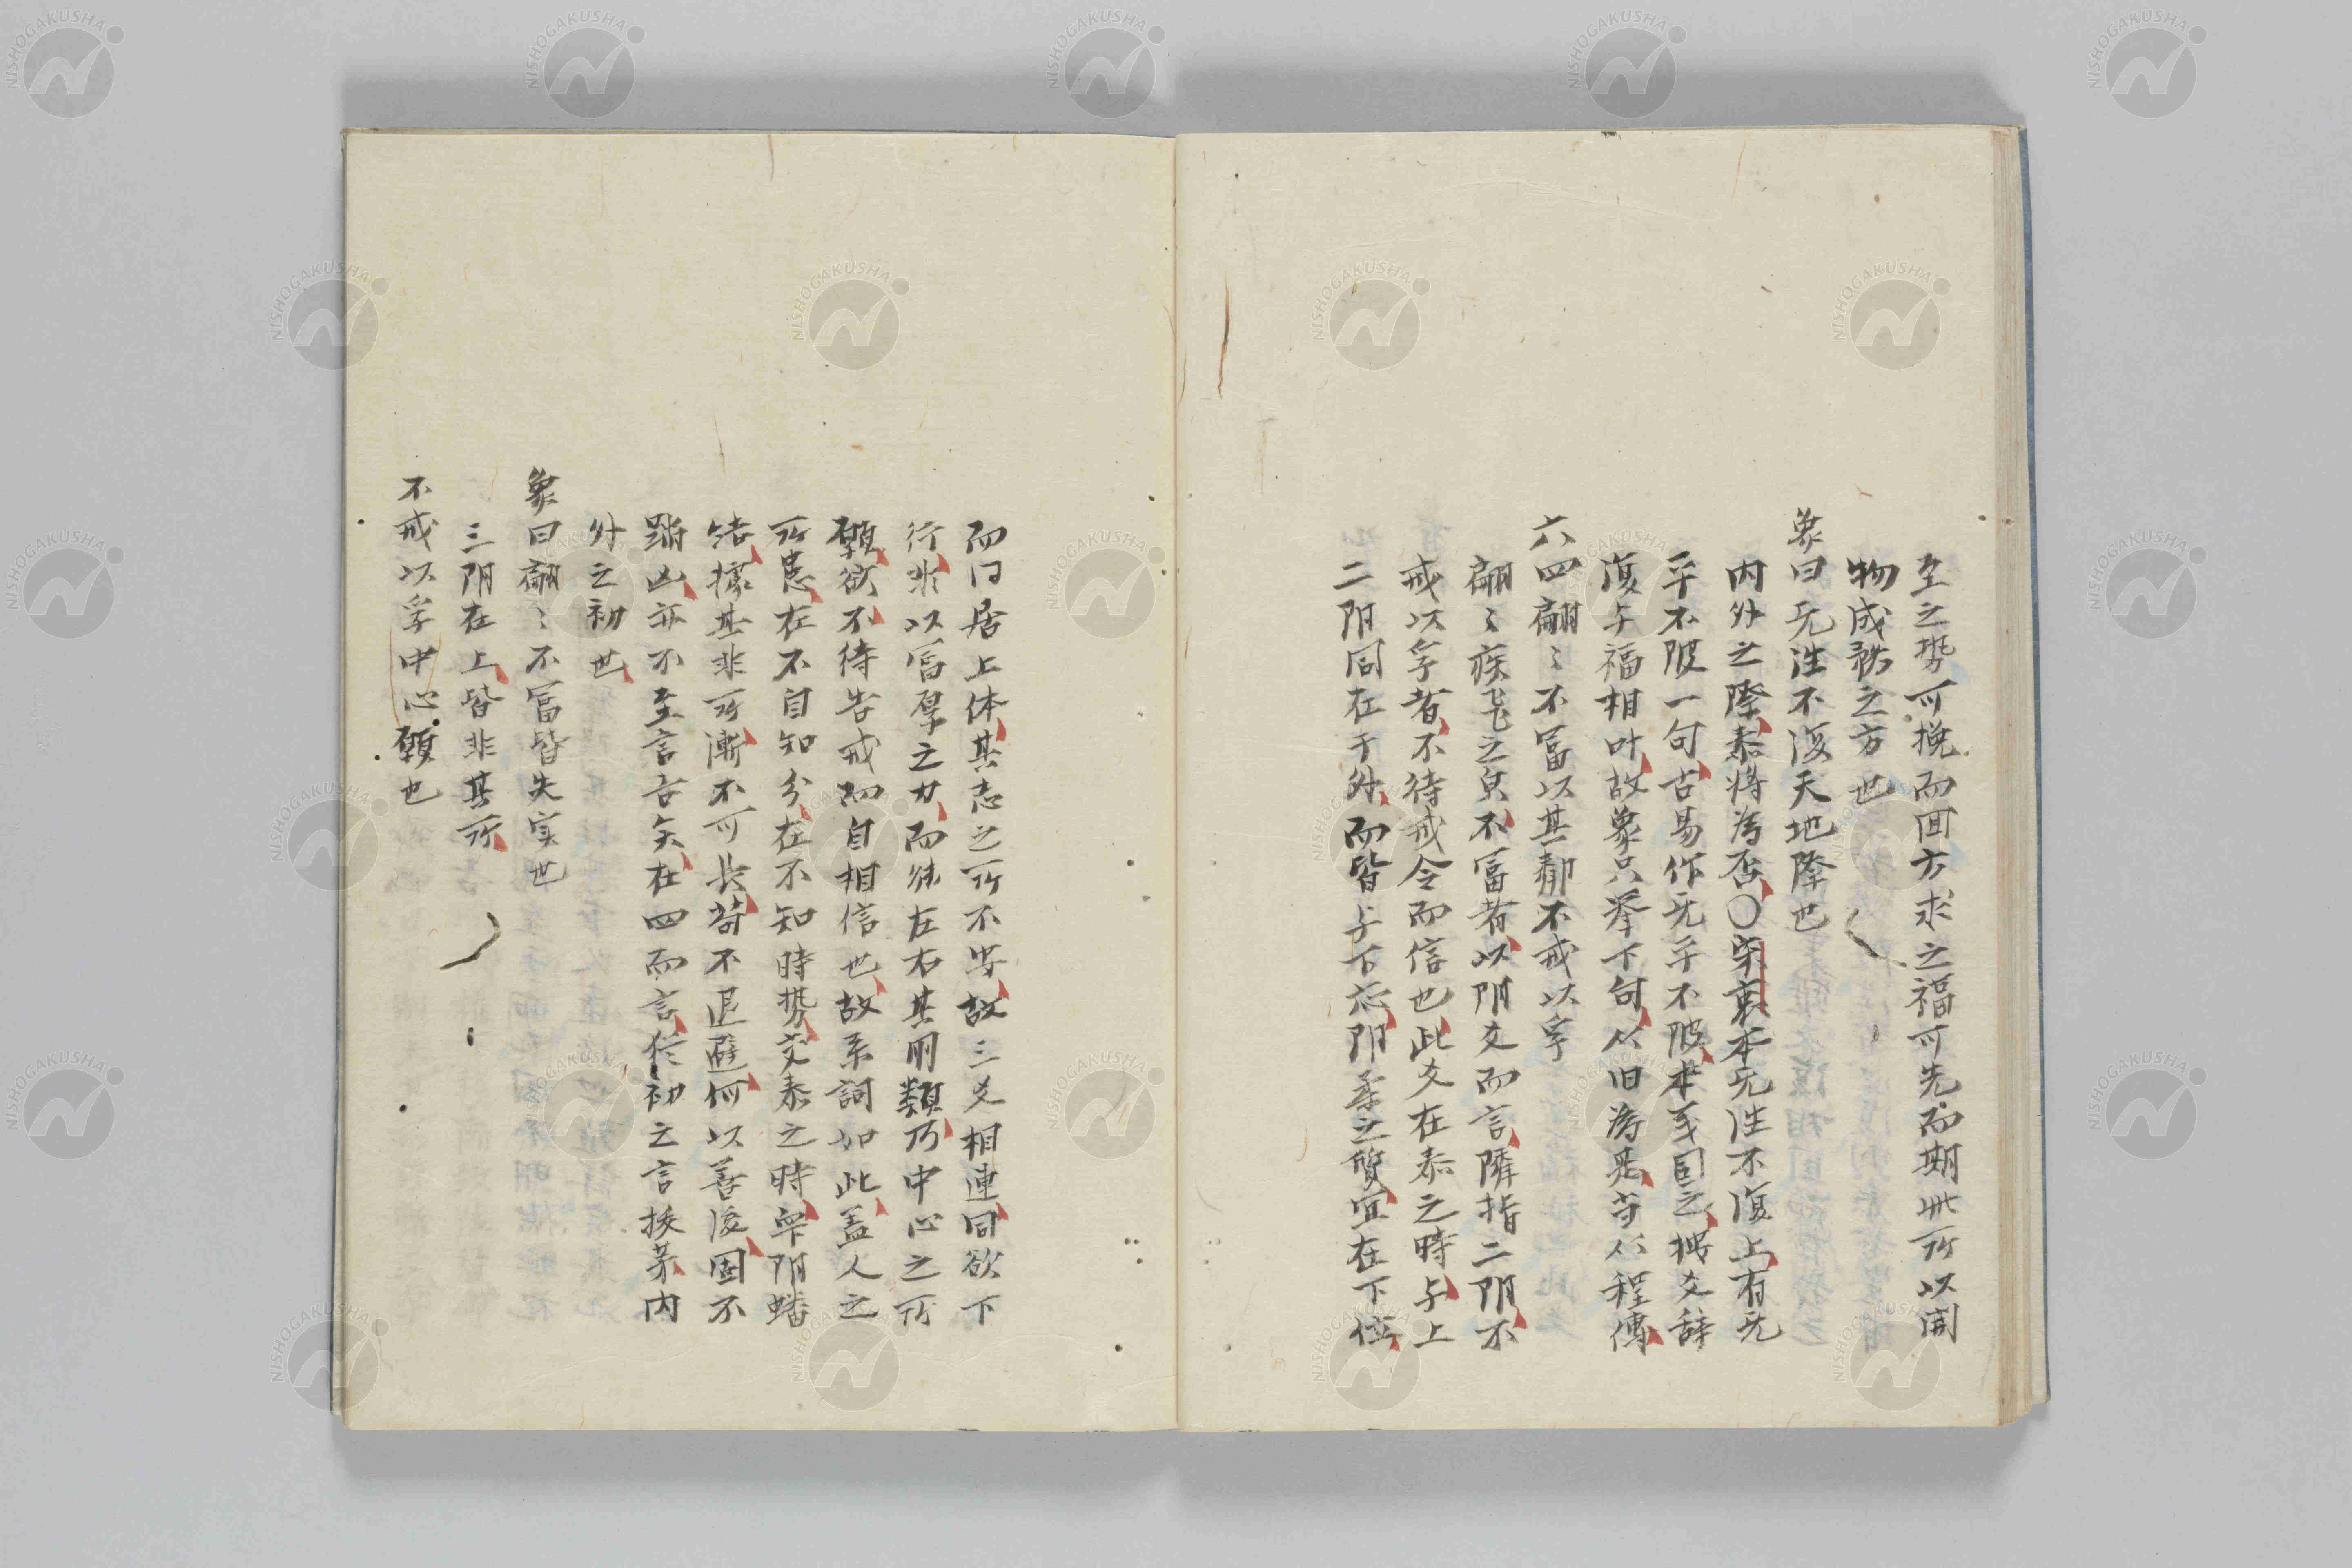 至之勢可挽而回方求之福可先而期此所以開
物成務之方也
象曰无往不復天地際也
内外之際泰將為否〇宋衷本无往不復上有无
平不陂一句古易作无平不陂本或因之據爻辞
復与福相叶故象只挙下句以旧為是苟从程傳
六四翩〻不富以其鄰不戒以孚
翩〻疾飛之皃不富者以阴爻而言隣指二阴不
戒以孚者不待戒令而信也此爻在泰之時与上
二阴同在于外而皆与下応阴柔之質宜在下位
而同居上体其志之所不安故三爻相連同欲下
行非以富厚之力而能左右其朋類乃中心之所
願欲不待告戒而自相信也故系詞如此盖人之
所患在不自知分在不知時勢交泰之時宰阴蟠
結據其非所漸不可長苟不退避何以善後固不
蹈凶亦不至言吉矣在四而言從初之言拔茅内
外之初也
象曰翩〻不富皆失实也
三阴在上皆非其所
不戒以孚中心願也
NISHOGAKUSHA